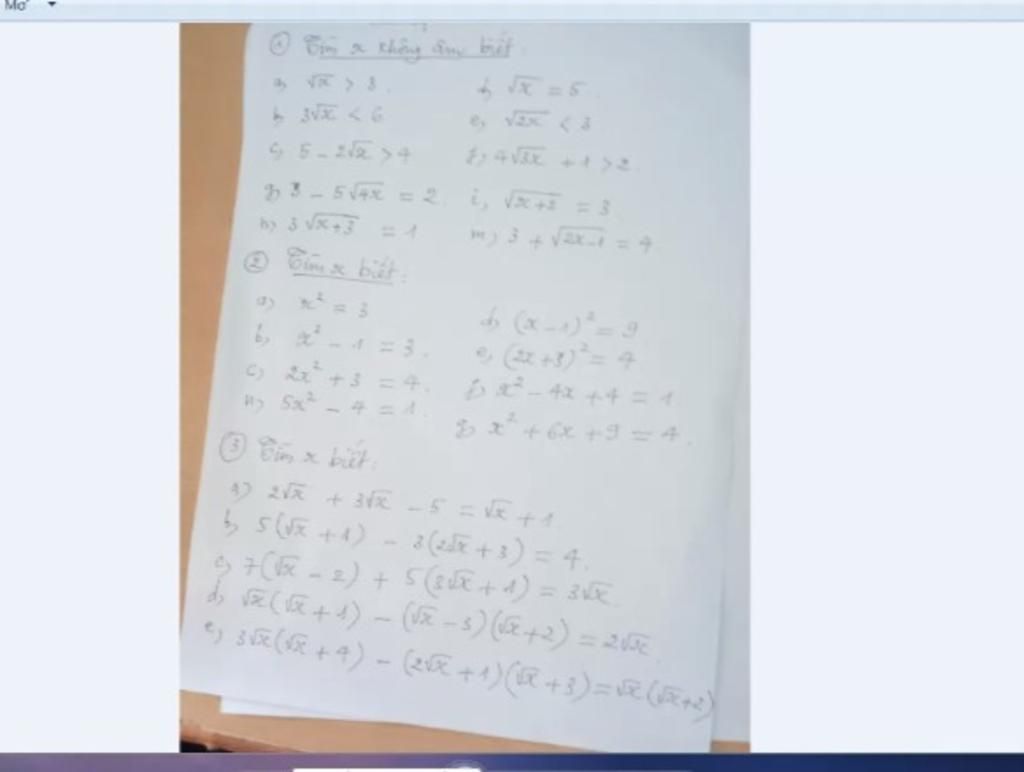 ① Tìm x không âm biết:
a) √x > 3. d) √x = 5.
b) 3√x < 6 e) √2x < 3
c) 5 - 2√x > 4 f) 4√3x + 1 > 2.
g) 3 - 5√4x = 2. i, √x+2 = 3.
h) 3√x+3 = 1 m) 3 + √2x-1 = 4.
② Tìm x biết:
a) x² = 3 d) (x-1)² = 9
b, x² - 1 = 3. e, (2x+3)² = 4
c) 2x² + 3 = 4. f) x² - 4x + 4 = 1
n) 5x² - 4 = 1. g) x² + 6x + 9 = 4.
③ Tìm x biết:
a) 2√x + 3√x - 5 = √x + 1
b, 5(√x + 1) - 3(2√x + 3) = 4.
c, 7(√x - 2) + 5(3√x + 1) = 3√x.
d, √x(√x + 1) - (√x - 3)(√x+2) = 2√x.
e, 3√x(√x + 4) - (2√x + 1)(√x + 3) = √x(√x+2)